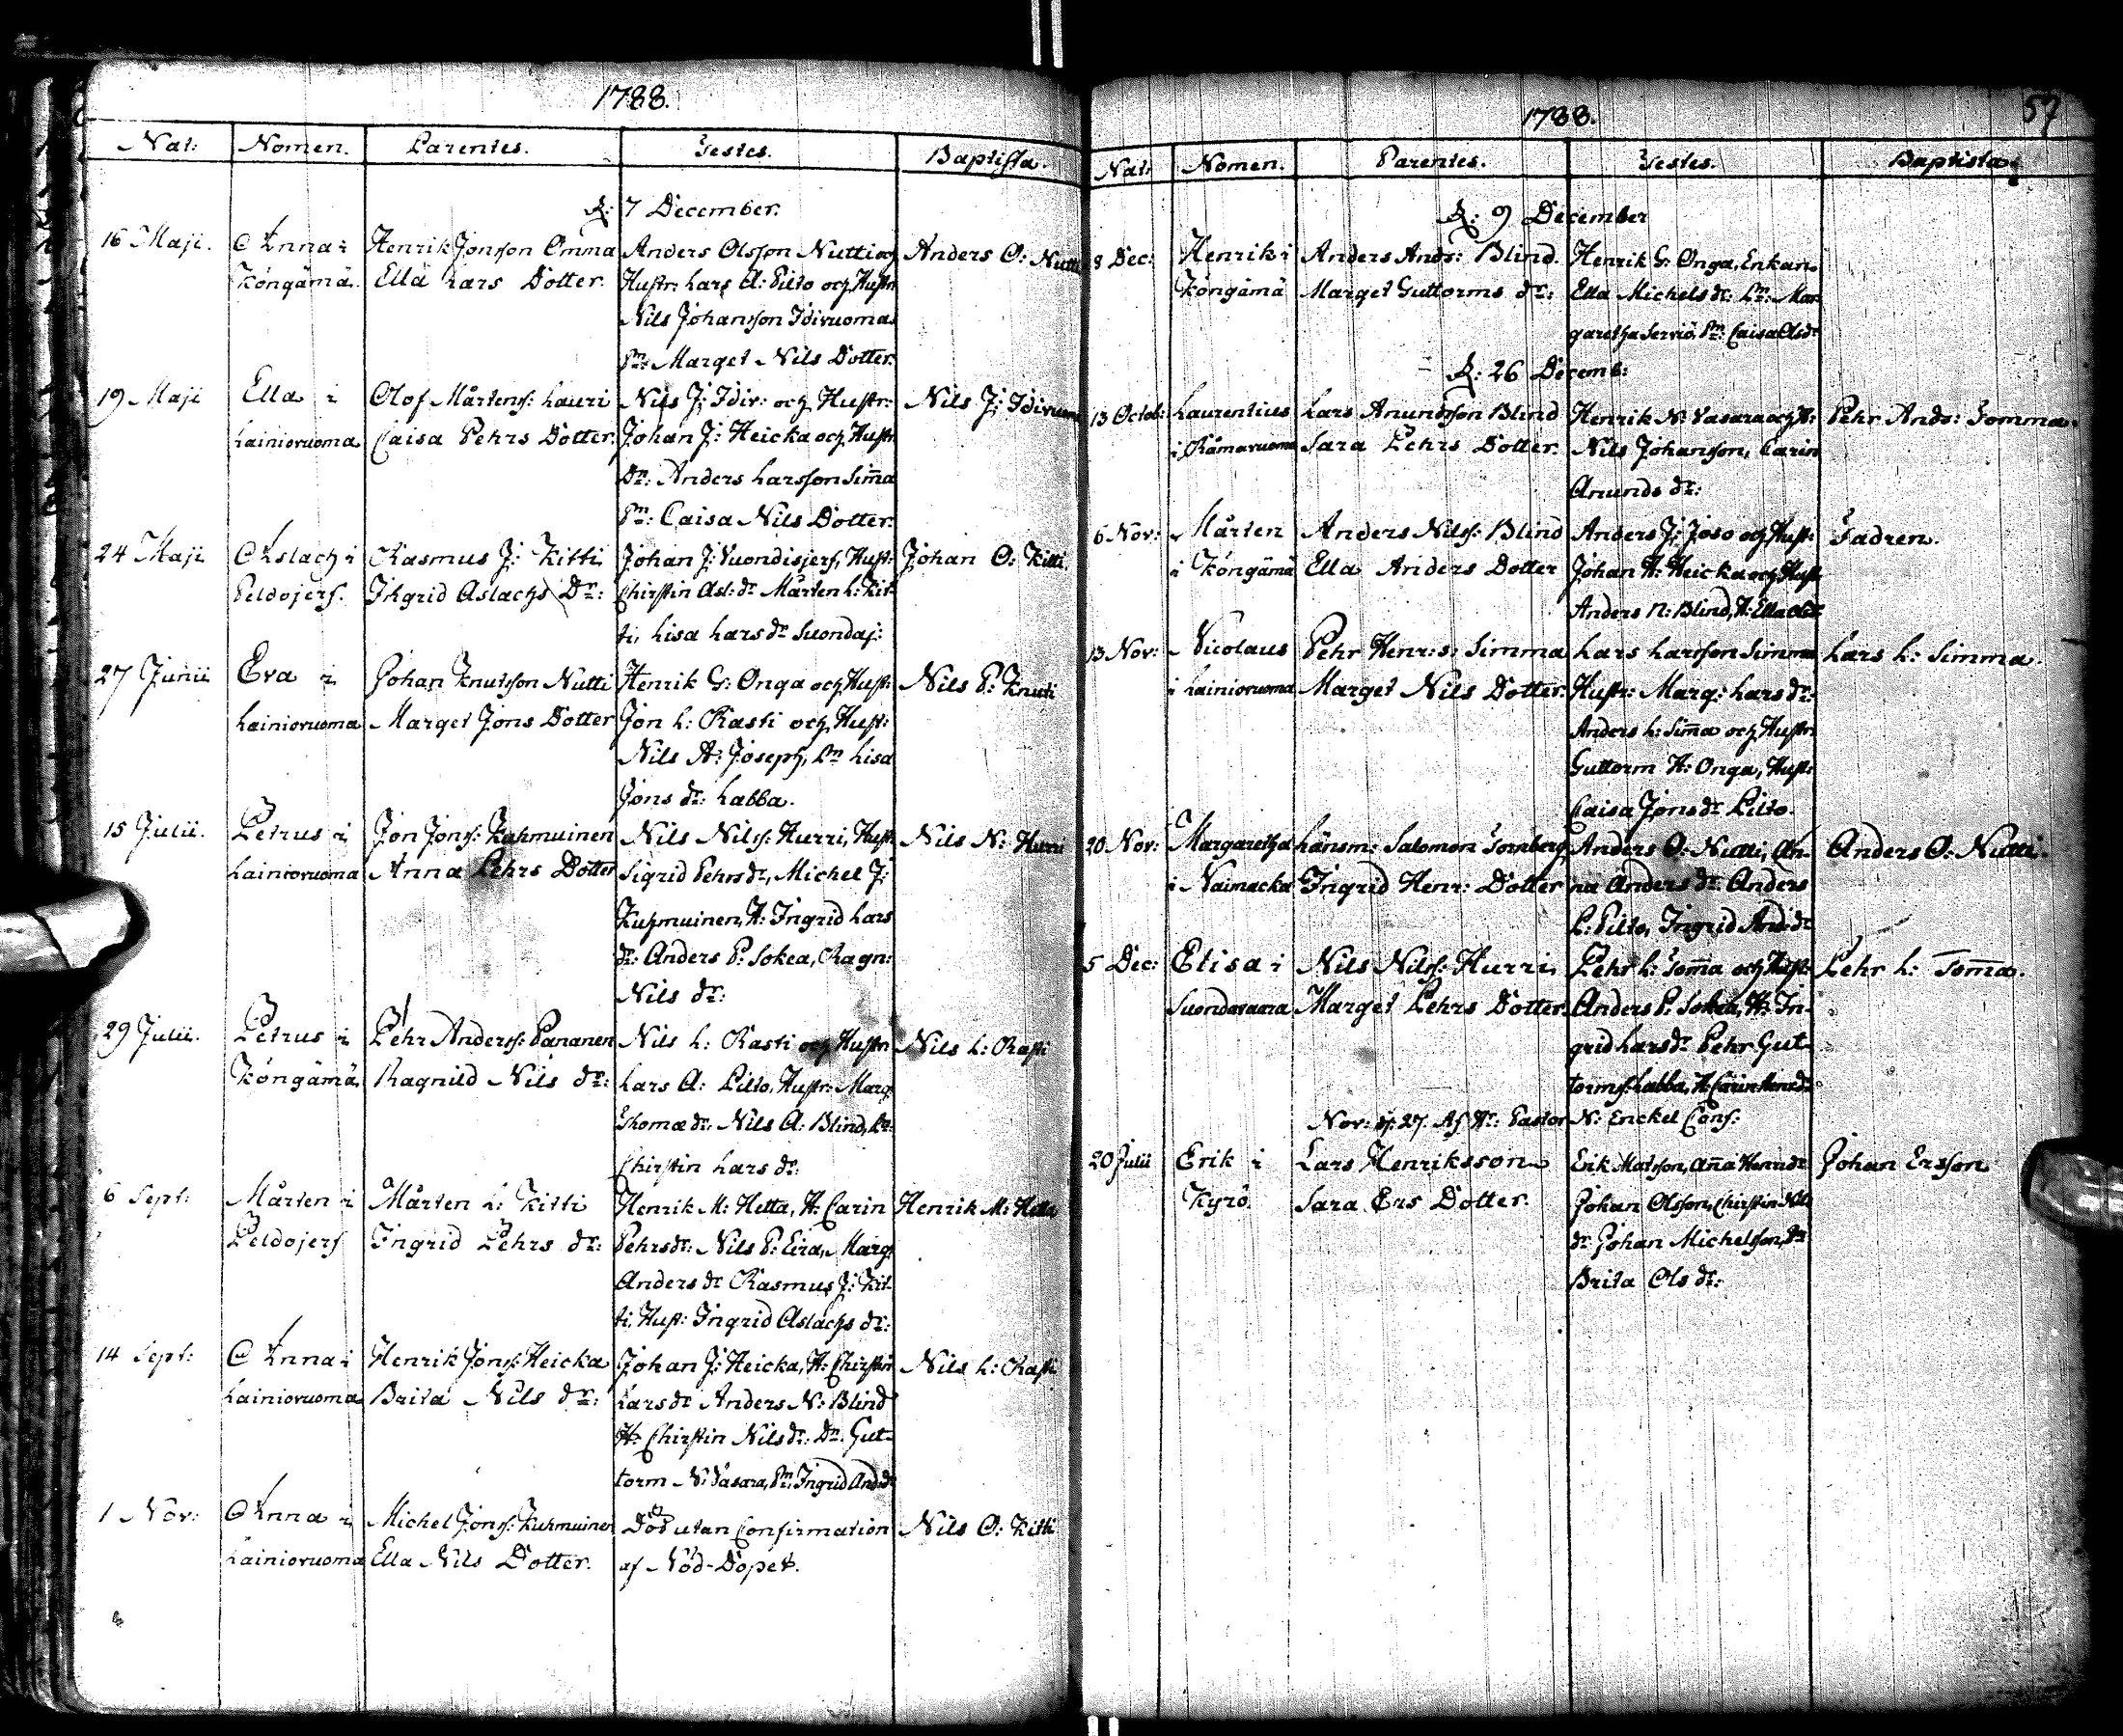 1788.
Nat: Nomen. Parentes. Testes. Baptista.
D: 7 December.
16 Maji. Anna i Henrik Jonsson Omma Anders Olsson Nutti och Anders O: Nutti
Köngämä. Ella Lars Dotter. Hustr: Lars A: Pilto och Hustr
Nils Johansson Idivuoma
Pn: Marget Nils Dotter.
19 Maji Ella i Olof Mårtens: Lauri Nils J: Idiv: och Hustr: Nils J: Idivuoma
Lainiovuoma Caisa Pehrs Dotter. Johan J: Heicka och Hustr
Dr: Anders Larsson Sim̄a
Pn: Caisa Nils Dotter.
24 Maji Aslach i Rasmus J: Kitti Johan J: Vuondisjerf, Hust: Johan O: Kitti.
Peldojerf. Ingrid Aslachs Dr: Chirstin Asl: dr Mårten L: Kit-
ti, Lisa Lars dr Suondaj:
27 Junii Eva i Johan Knutsson Nutti Henrik G: Onga och Hust: Nils P: Knuti
Lainiovuoma Marget Jons Dotter Jon L: Rasti och Hust:
Nils A: Joseph, Pn Lisa
Jons dr: Labba.
15 Julii. Petrus i Jon Jons: Kuhmuinen Nils Nilss: Hurri, Hust: Nils N: Hurri
Lainiovuoma Anna Pehrs Dotter Sigrid Pehrs dr, Michel J:
Kuhmuinen, H: Ingrid Lars
dr: Anders P: Sokea, Ragn:
Nils dr:
29 Julii. Petrus i Pehr Anderss: Pananen Nils L: Rasti och Hustr Nils L: Rasti
Köngämä. Ragnild Nils dr: Lars A: Pilto, Hustr: Marg:
Thomæ dr: Nils A: Blind, Pn:
Chirstin Lars dr:
6 Sept: Mårten i Mårten L: Kitti Henrik M: Hetta, H: Carin Henrik M: Hetta
Peldojerf Ingrid Pehrs dr: Pehrs dr: Nils P: Eira, Marg:
Anders dr Rasmus J: Kit-
ti, Hust: Ingrid Aslachs dr:
14 Sept: Anna i Henrik Jons: Heicka Johan J: Heicka, H: Chirstin Nils L: Rasti
Lainiovuoma Brita Nils dr: Lars dr Anders N: Blind
H: Chirstin Nils dr: Dr. Gut-
torm N: Vasara, Pn: Ingrid And: dr
1 Nov: Anna i Michel Jons: Kuhmuinen Död utan Confirmation Nils O: Kitti
Lainiovuoma Ella Nils Dotter. af Nöd-Dopet.
1788. 57
Nat: Nomen. Parentes. Testes. Baptista.
D: 9 December
8 Dec: Henrik i Anders Ands: Blind. Henrik G: Onga, Enkan
Köngämä Marget Guttorms dr: Ella Michels dr: Pn: Mar-
garetha Serviö, Pn: Caisa Ols dr
D: 26 Decemb:
13 Octob: Laurentius Lars Anundsson Blind Henrik N: Vasara och H: Pehr Ands: Tomma.
i Råmavuoma Sara Pehrs Dotter. Nils Johansson, Carin
Anunds dr:
6 Nov: Mårten Anders Nilss: Blind Anders J: Joso och Hust: Fadren.
i Köngämä Ella Anders Dotter Johan H: Heicka och Hust:
Anders N: Blind, H: Ella
13 Nov: Nicolaus Pehr Henr: s: Simma Lars Larsson Simma Lars L: Simma.
i Lainiovuoma Marget Nils Dotter. Hustr: Marg: Lars dr:
Anders L: Sim̄a och Hustr
Guttorm H: Onga, Hust:
Caisa Jons dr Pilto.
20 Nov: Margaretha Länsm: Salomon Tornberg Anders O: Nutti, An- Anders O: Nutti.
i Naimacka Ingrid Henr: Dotter na Anders dr: Anders
P: Pilto, Ingrid And: dr
5 Dec: Elisa i Nils Nilss: Hurri Pehr L: Tom̄a och Hust: Pehr L: Tom̄a.
Suondavaara Marget Pehrs Dotter. Anders P: Sokea, H: In-
grid Lars dr Pehr Gut-
torms: Labba, H: Carin Henr: dr
Nov: d: 27. Af Hr: Pastor N: Enckel Conf:
20 Julii Erik i Lars Henriksson Erik Matsson, An̄a Henr: dr Johan Ersson
Kyrö. Sara Ers Dotter. Johan Olsson, Chirstin
dr Johan Michelsson, Pn
Brita Ols dr: